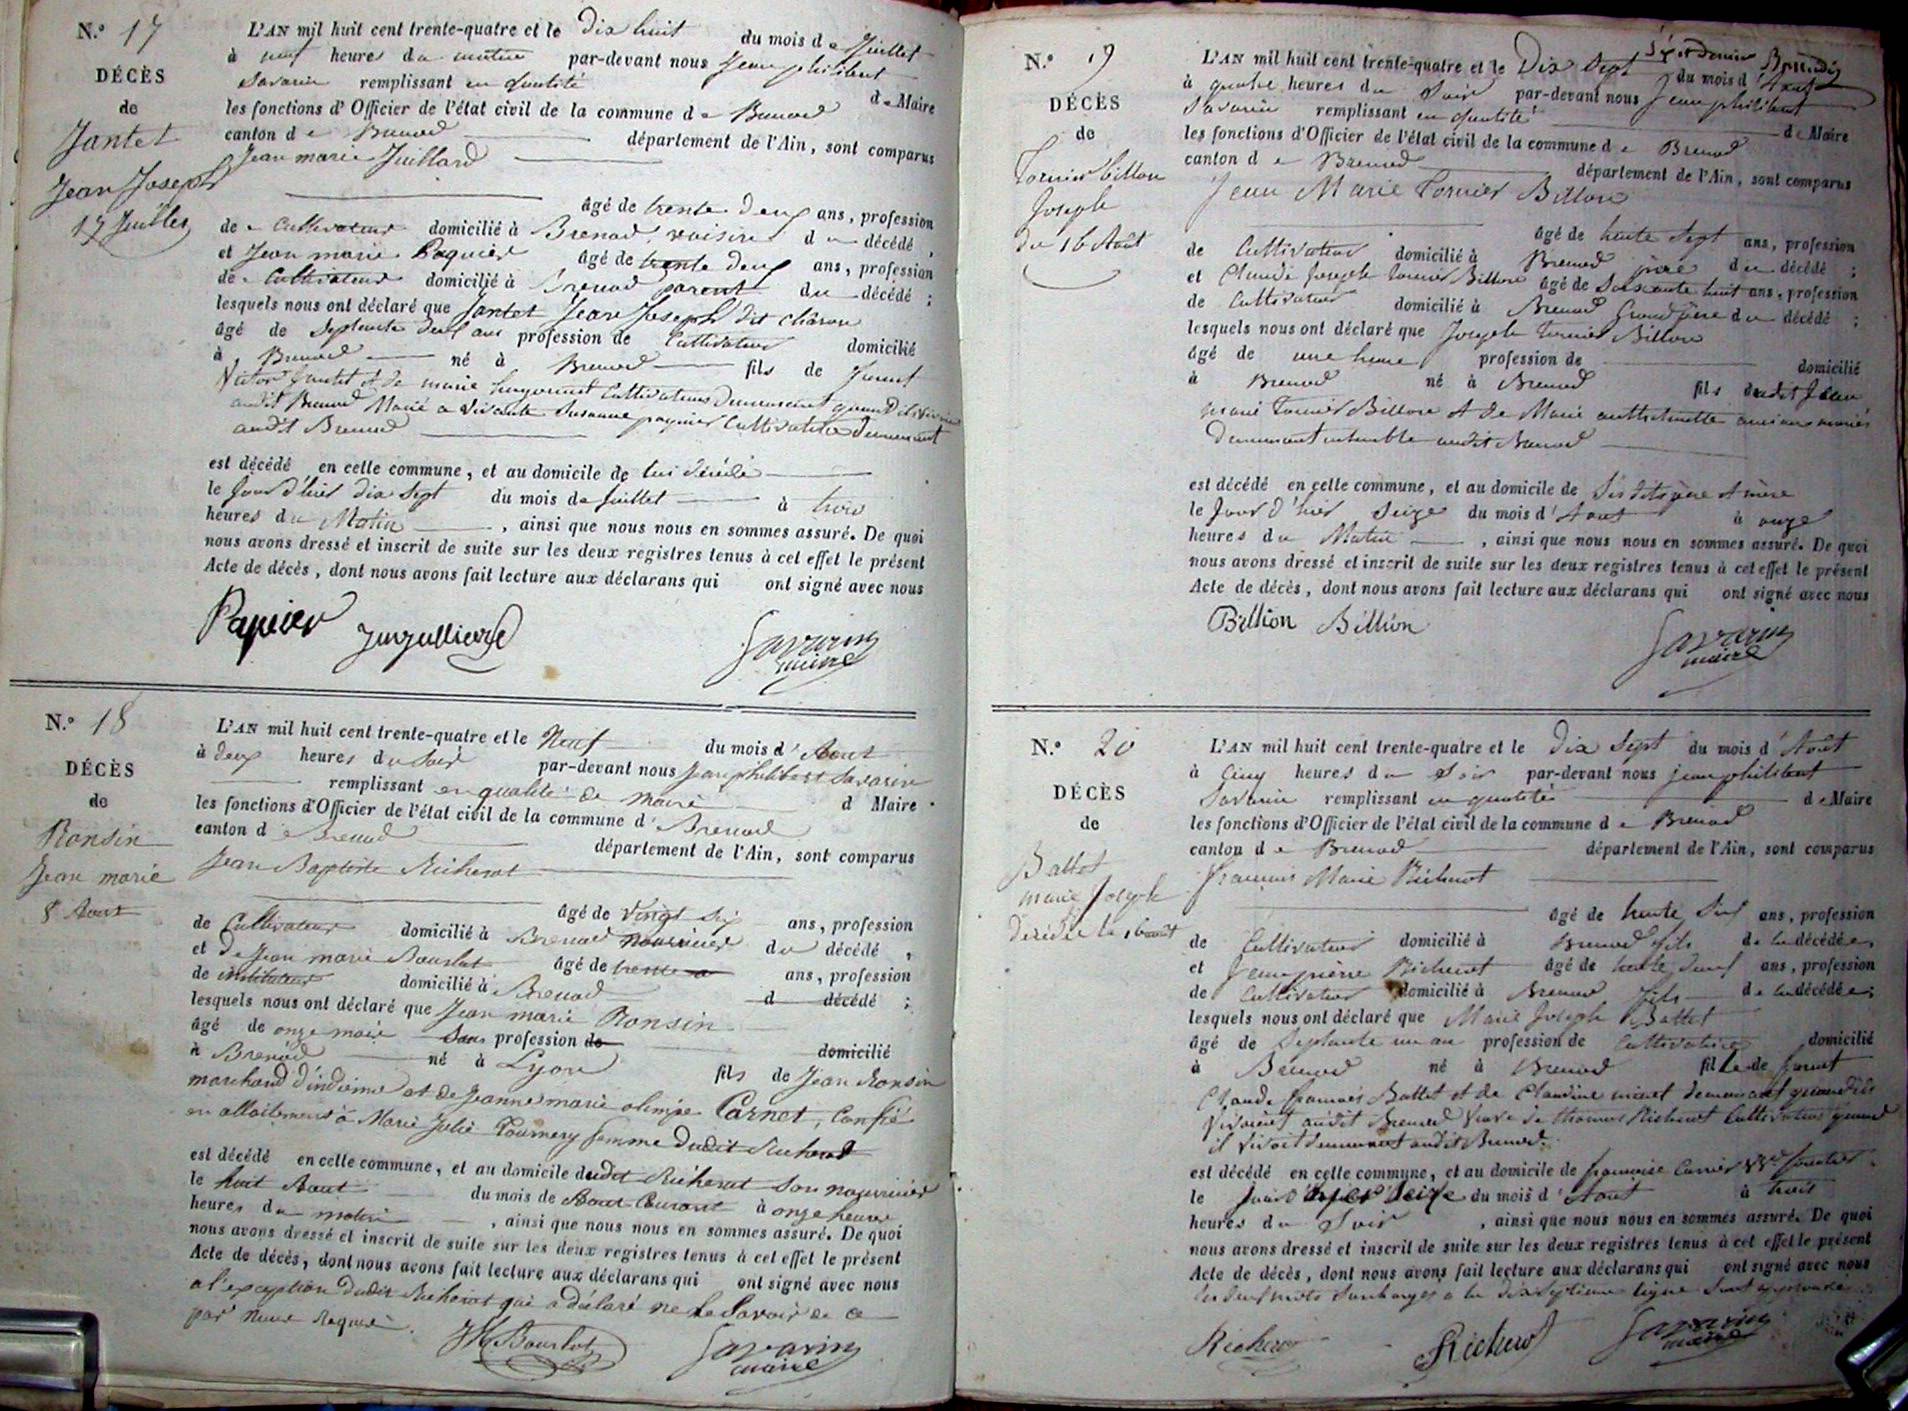 N.º 17
DÉCÈS
de
Jantet
Jean Joseph
17 Juillet
L'AN mil huit cent trente-quatre et le dix huit du mois de Juillet
à neuf heures du matin par-devant nous Jean philibert
Savarin remplissant en qualité de Maire
les fonctions d'Officier de l'état civil de la commune de Brenod
canton de Brenod département de l'Ain, sont comparus
Jean marie Juillard
âgé de trente deux ans, profession
de Cultivateur domicilié à Brenod, voisin du décédé,
et Jean marie Paquier âgé de trente deux ans, profession
de Cultivateur domicilié à Brenod parent du décédé ;
lesquels nous ont déclaré que Jantet Jean Joseph dit
âgé de Septante deux ans profession de Cultivateur domicilié
à Brenod né à Brenod fils de
Jantet et de marie Cultivateurs Demeurant quand
audit Brenod Marié a vivante Susanne paquier Cultivatrice Demeurant
audit Brenod
est décédé en celle commune, et au domicile de lui décédé
le Jour d'hier dix Sept du mois de Juillet à trois
heures du Matin, ainsi que nous nous en sommes assuré. De quoi
nous avons dressé et inscrit de suite sur les deux registres tenus à cet effet le présent
Acte de décès, dont nous avons fait lecture aux déclarans qui ont signé avec nous
Paquier Savarin
maire
N.º 18
DÉCÈS
de
Ronsin
Jean marie
8 Aout
L'AN mil huit cent trente-quatre et le Neuf du mois d'Aout
à deux heures du Soir par-devant nous Jean philibert Savarin
remplissant en qualité de maire d Maire
les fonctions d'Officier de l'état civil de la commune d Brenod
canton d e Brenod département de l'Ain, sont comparus
Jean Baptiste Richerot
âgé de vingt Six ans, profession
de Cultivateur domicilié à Brenod nourricier du décédé,
et de Jean marie Bourlot âgé de trente ans, profession
de instituteur domicilié à Brenod d décédé ;
lesquels nous ont déclaré que Jean marie Ronsin
âgé de onze mois Sans profession de domicilié
à Brenod né à Lyon fils de Jean Ronsin
marchand d'indienne et de Jeanne marie olimpe Carnet, Confié
en allaitement à Marie Julie Tournery femme Dudit Richerot
est décédé en celle commune, et au domicile dudit Richerot Son nourricier
le huit Aout du mois de Aout Courant à onze heures
heures du matin, ainsi que nous nous en sommes assuré. De quoi
nous avons dressé et inscrit de suite sur les deux registres tenus à cet effet le présent
Acte de décès, dont nous avons fait lecture aux déclarans qui ont signé avec nous
a l'exception Dudit Richerot qui a déclaré ne le Savoir de ce
par nous Requis.
Bourlot Savarin
maire
N.º 19
DÉCÈS
de
Tornier Billon
Joseph
du 16 Août
L'AN mil huit cent trente-quatre et le Dix Sept du mois d'Aout
à quatre heures du Soir par-devant nous Jean philibert
Savarin remplissant en qualité de Maire
les fonctions d'Officier de l'état civil de la commune de Brenod
canton de Brenod département de l'Ain, sont comparus
Jean Marie Tornier Billon
âgé de trente Sept ans, profession
de Cultivateur domicilié à Brenod père du décédé ;
et Claude Joseph tornier Billon âgé de Soixante huit ans, profession
de Cultivateur domicilié à Brenod Grand père du décédé ;
lesquels nous ont déclaré que Joseph Tornier Billon
âgé de une heure profession de domicilié
à Brenod né à Brenod fils dudit Jean
marie Tornier Billon et de Marie mariés
Demeurant ensemble audit Brenod
est décédé en celle commune, et au domicile de Sesdits père et mère
le Jour d'hier Seize du mois d'Aout à onze
heures du Matin, ainsi que nous nous en sommes assuré. De quoi
nous avons dressé et inscrit de suite sur les deux registres tenus à cet effet le présent
Acte de décès, dont nous avons fait lecture aux déclarans qui ont signé avec nous
Billion Billion Savarin
maire
N.º 20
DÉCÈS
de
Battet
marie Joseph
décédée le 16 août
L'AN mil huit cent trente-quatre et le Dix Sept du mois d'Août
à Cinq heures du Soir par-devant nous jean philibert
Savarin remplissant en qualité de Maire
les fonctions d'Officier de l'état civil de la commune de Brenod
canton de Brenod département de l'Ain, sont comparus
françois Marie Richerot
âgé de trente Six ans, profession
de Cultivateur domicilié à Brenod fils de la décédée,
et Jean pierre Richerot âgé de trente deux ans, profession
de Cultivateur domicilié à Brenod fils de la décédée ;
lesquels nous ont déclaré que Marie Joseph Battet
âgé de Septante un an profession de Cultivatrice domicilié
à Brenod né à Brenod fille de
Claude françois Battet et de Claudine demeurant quand ils
vivaient audit Brenod veuve de thomas Richerot Cultivateur quand
il vivait demeurant audit Brenod.
est décédé en celle commune, et au domicile de françoise Carrier
le Jour d'hier Seize du mois d'Aout à trois
heures du Soir, ainsi que nous nous en sommes assuré. De quoi
nous avons dressé et inscrit de suite sur les deux registres tenus à cet effet le présent
Acte de décès, dont nous avons fait lecture aux déclarans qui ont signé avec nous
les deux mots Surchargés a la Dix Septieme ligne Sont approuvés
Richerot Richerot Savarin
maire